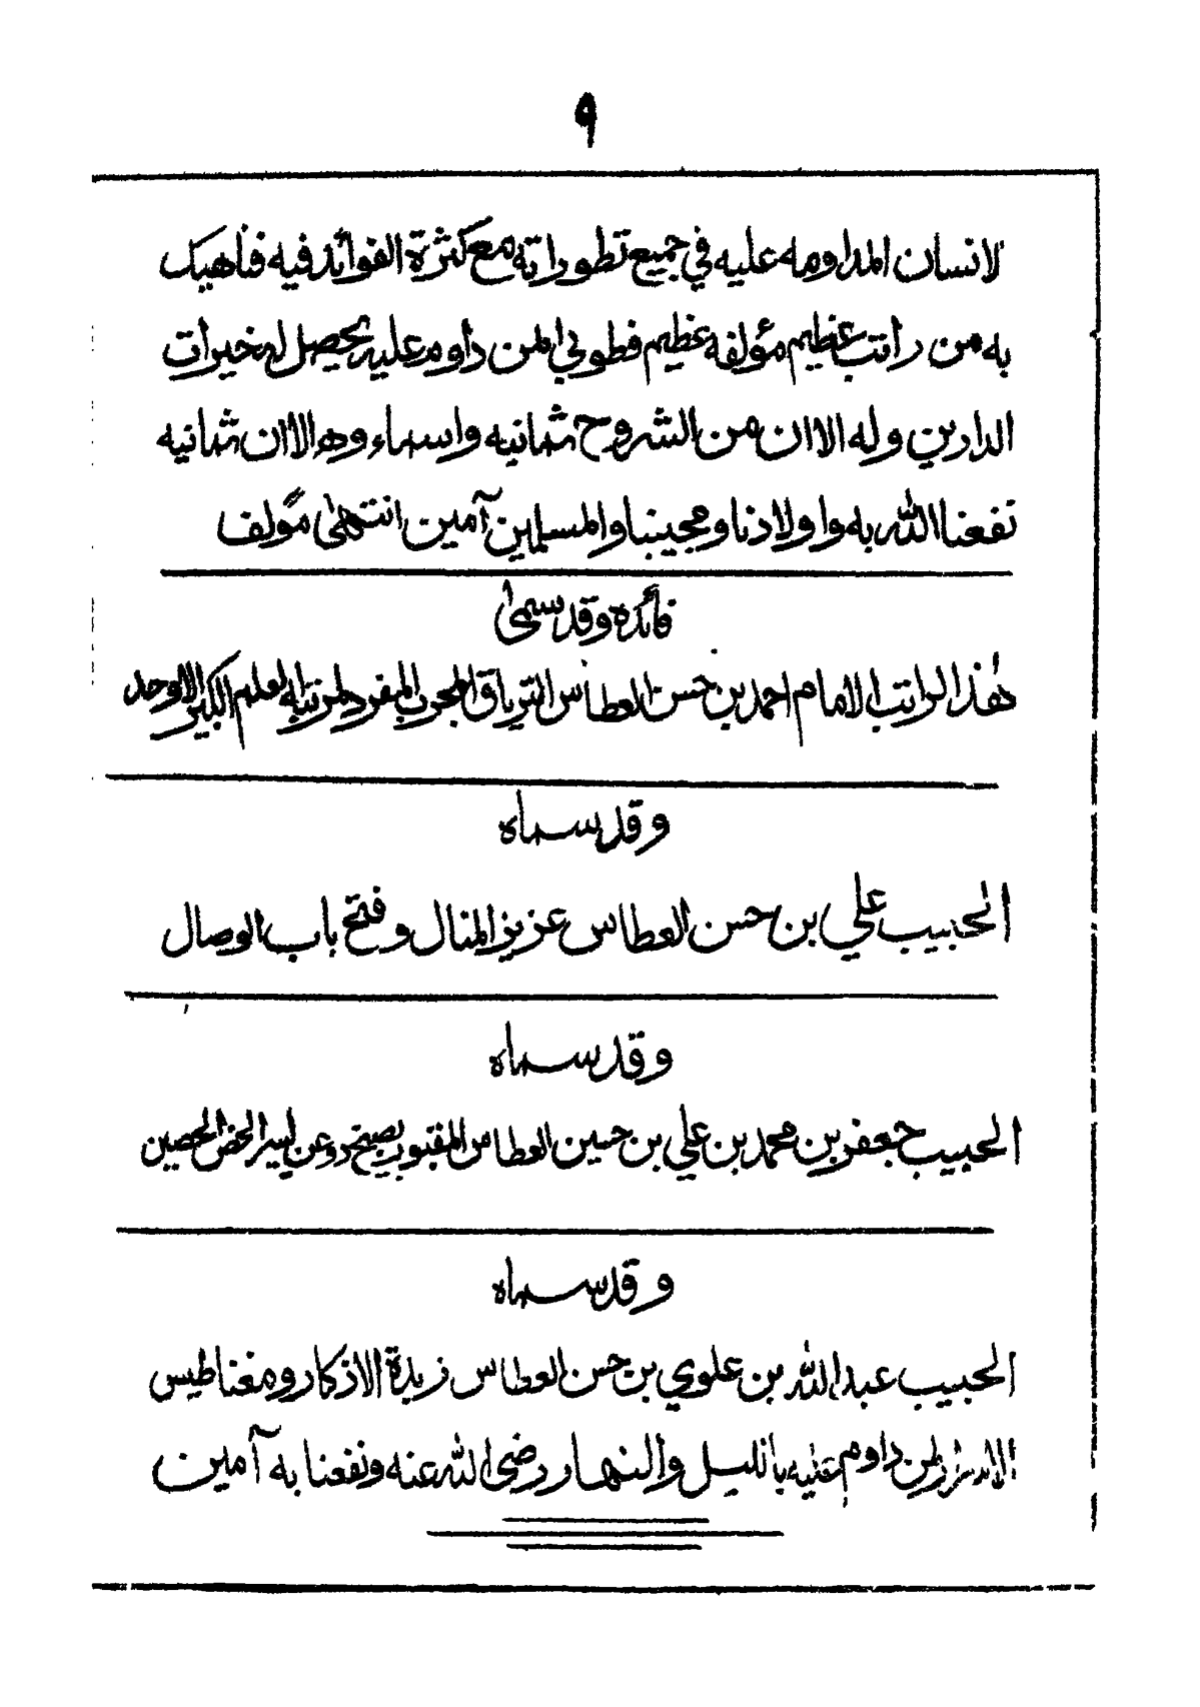 ٩
لانسان المداومه عليه في جميع تطوراته مع كثرة الفوائد فيه فناهيك
به من راتب عظيم مؤلفه عظيم فطوبى لمن داوم عليه يحصل له خيرات
الدارين وله الاان من الشروح ثمانيه واسماءوه الاان ثمانيه
نفعنا الله به واولادنا ومحبينا والمسلمين آمين انتهى مؤلف
فائدة وقد سمى
هذا الراتب الامام احمد بن حسن العطاس الترياق المجرب المفرد لمرتبه العلم الكبير الاوحد
وقد سماه
الحبيب علي بن حسن العطاس عزيز المنال وفتح باب الوصال
وقد سماه
الحبيب جعفر بن محمد بن علي بن حسين العطاس المقبور بصبيخ دوعن ليسر الحصن الحصين
وقد سماه
الحبيب عبدالله بن علوي بن حسن العطاس زبدة الاذكار ومغناطيس
الاسرار لمن داوم عليه بالليل والنهار رضي الله عنه ونفعنا به آمين